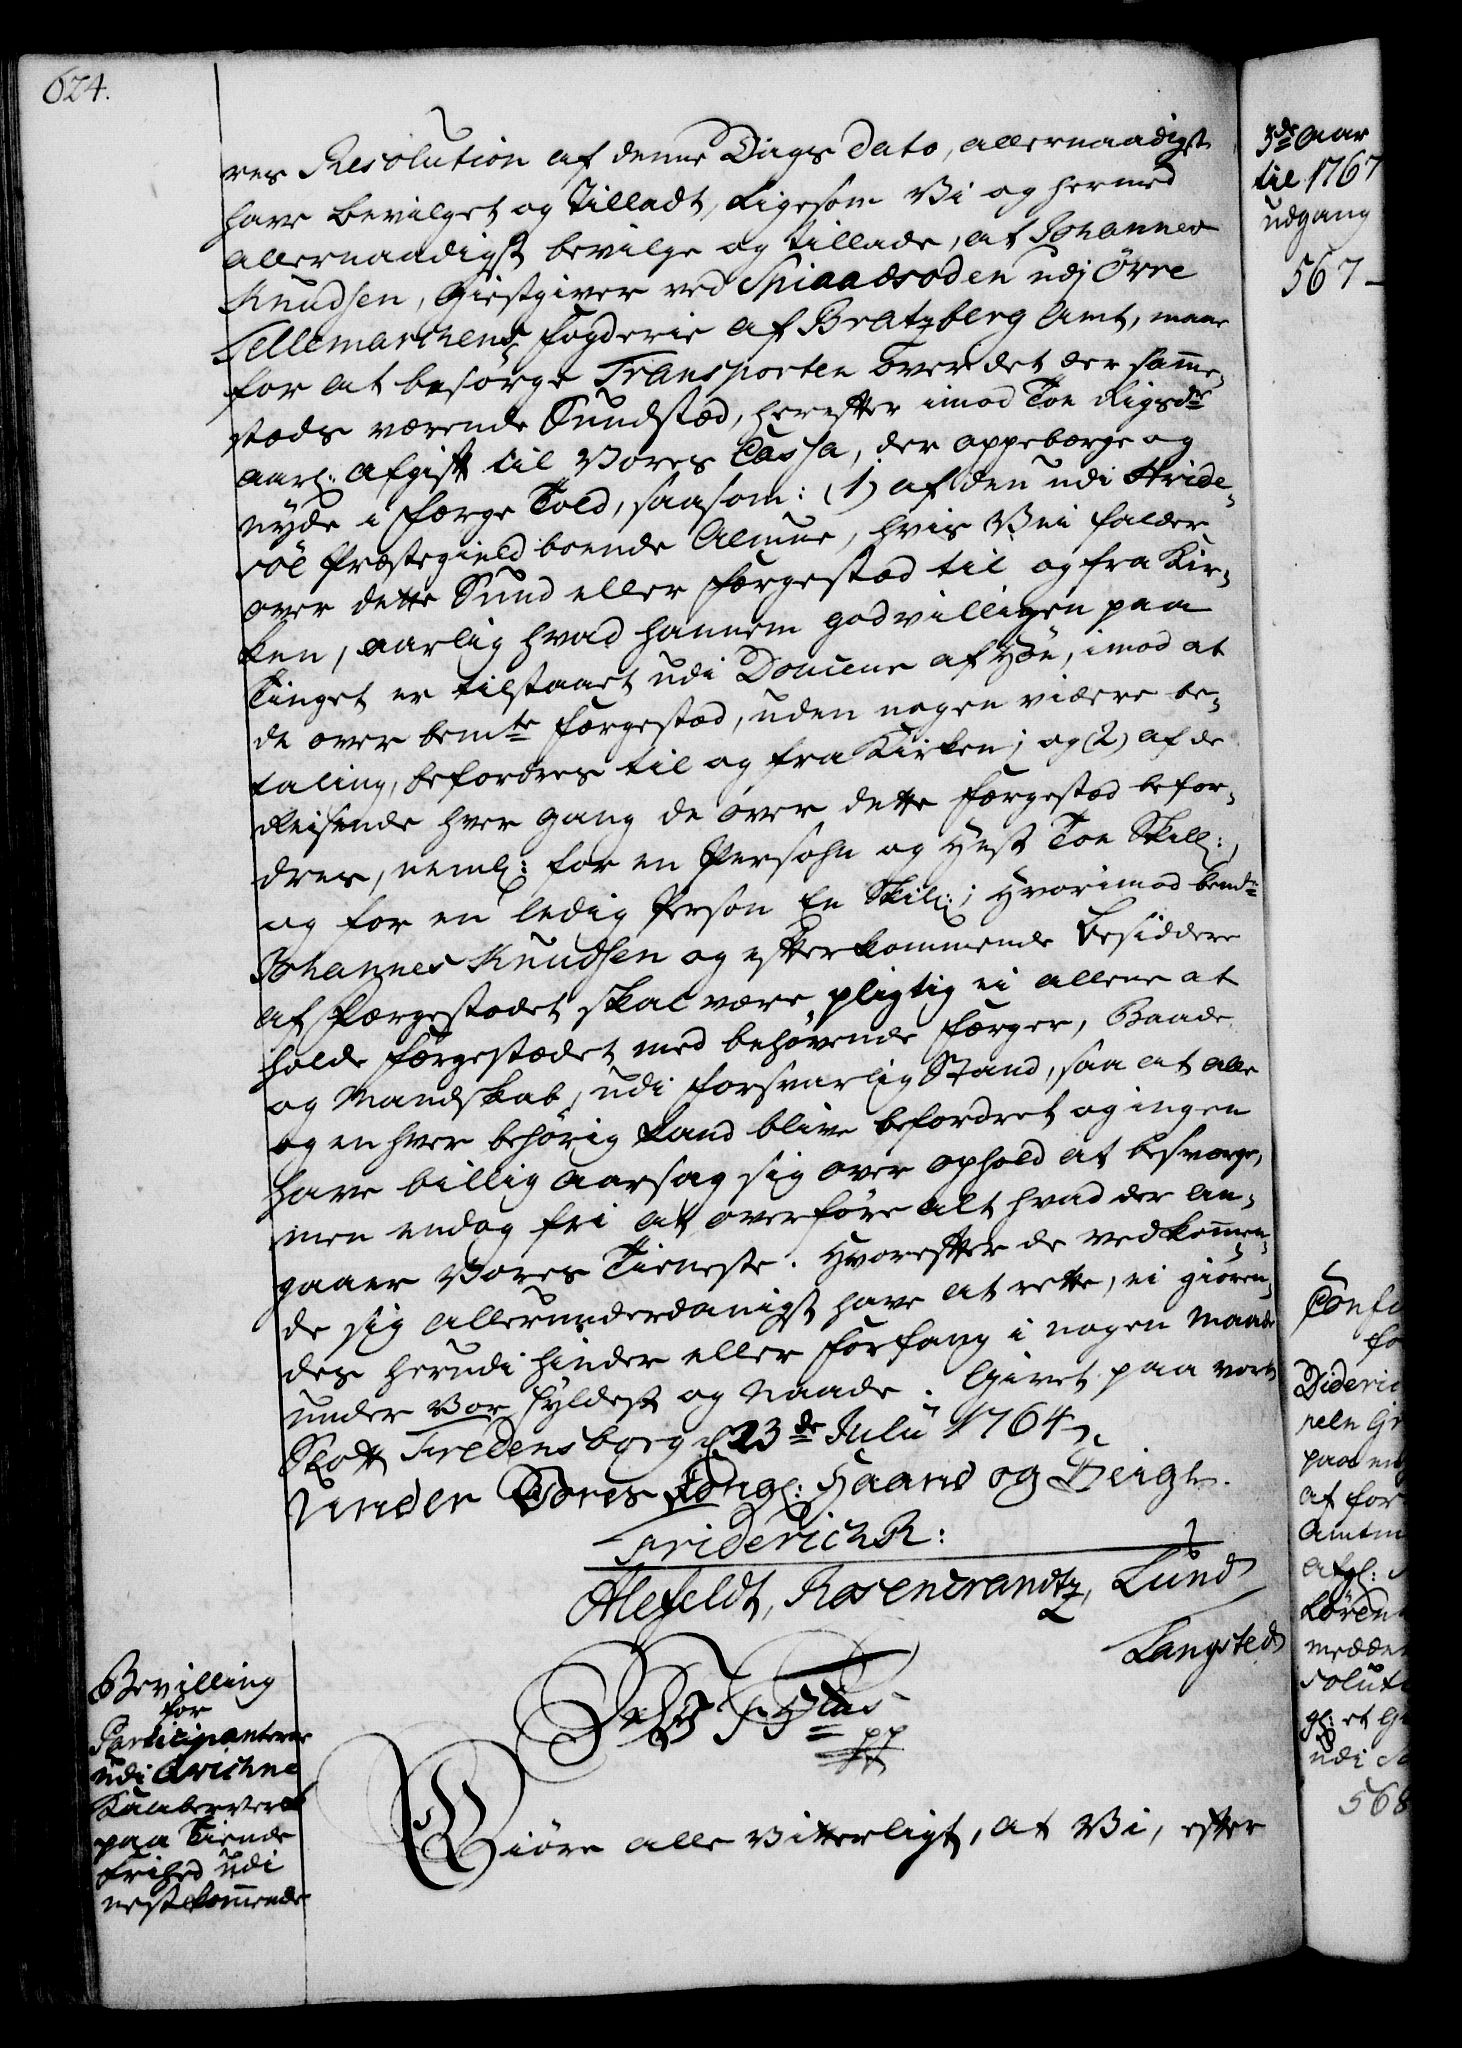 624.
res Resolution af denne Dags dato, allernaadigst
have bevilget og Tilladt, ligesom Vi og hermed
allernaadigst bevilge og tillade, at Johannes
Knudsen, Giestgiver ved Spiaadsodden udj Övre
Tellemarchens Fogderie af Bratzberg Amt, maae
for at besörge Transporten over det der samme¬
steds værende Sundsted, herefter imod Toe Rigsdr
aarl: Afgift til Vores Cassa, der oppebærge og
nyde i Færge Told, saasom: (1) af den udi Hvide¬
söe Præstegield boende Almue, hvis Vei falder
over dette Sund eller Færgested til og fra Kir¬
ken, aarlig hvad hannem godvilligen paa
Tinget er tilstaaet udi Douceur af Höe, imod at
de over bemte Færgested, uden nogen videre be¬
taling, befordres til og fra Kirken; og (2) af de
Reisende hver gang de over dette Færgested befor¬
dres, neml: for en Persohn og Hest Toe Skill:,
og for en ledig Person En Skil:; Hvorimod bemte
Johannes Knudsen og efterkommende Besiddere
af Færgestedet skal være pligtig ei allene at
holde Færgestædet med behövende Færger, Baade
og Mandskab, udi forsvarlig Stand, saa at alle
og en hver behörig kand blive befordret og ingen
have billig Aarsag sig over ophold at besværge,
men endog fri at overföre alt hvad der an¬
gaaer Vores Tieneste. Hvorefter de vedkommen¬
de sig allerunderdanigst have at rette, ei giören¬
des herudi hinder eller Forfang i nogen maade
under Vor Hyldest og Naade. Givet paa vort
Slott Fredensborg d 23de Julii 1764.
Under Vores Kongl: Haand og Zeigl.
Friderich R:
Alefeldt, Rosencrandtz, Lund
Langsted
Bevilling
for
Participanterne
udi Arichne
Kaaberverk
paa Tiende
frihed udi
nestkommende
Giöre alle Vitterligt, at Vi, efter
3de Aar
til 1767
udgang
567
Dideric
paa
at for
Amtm
568